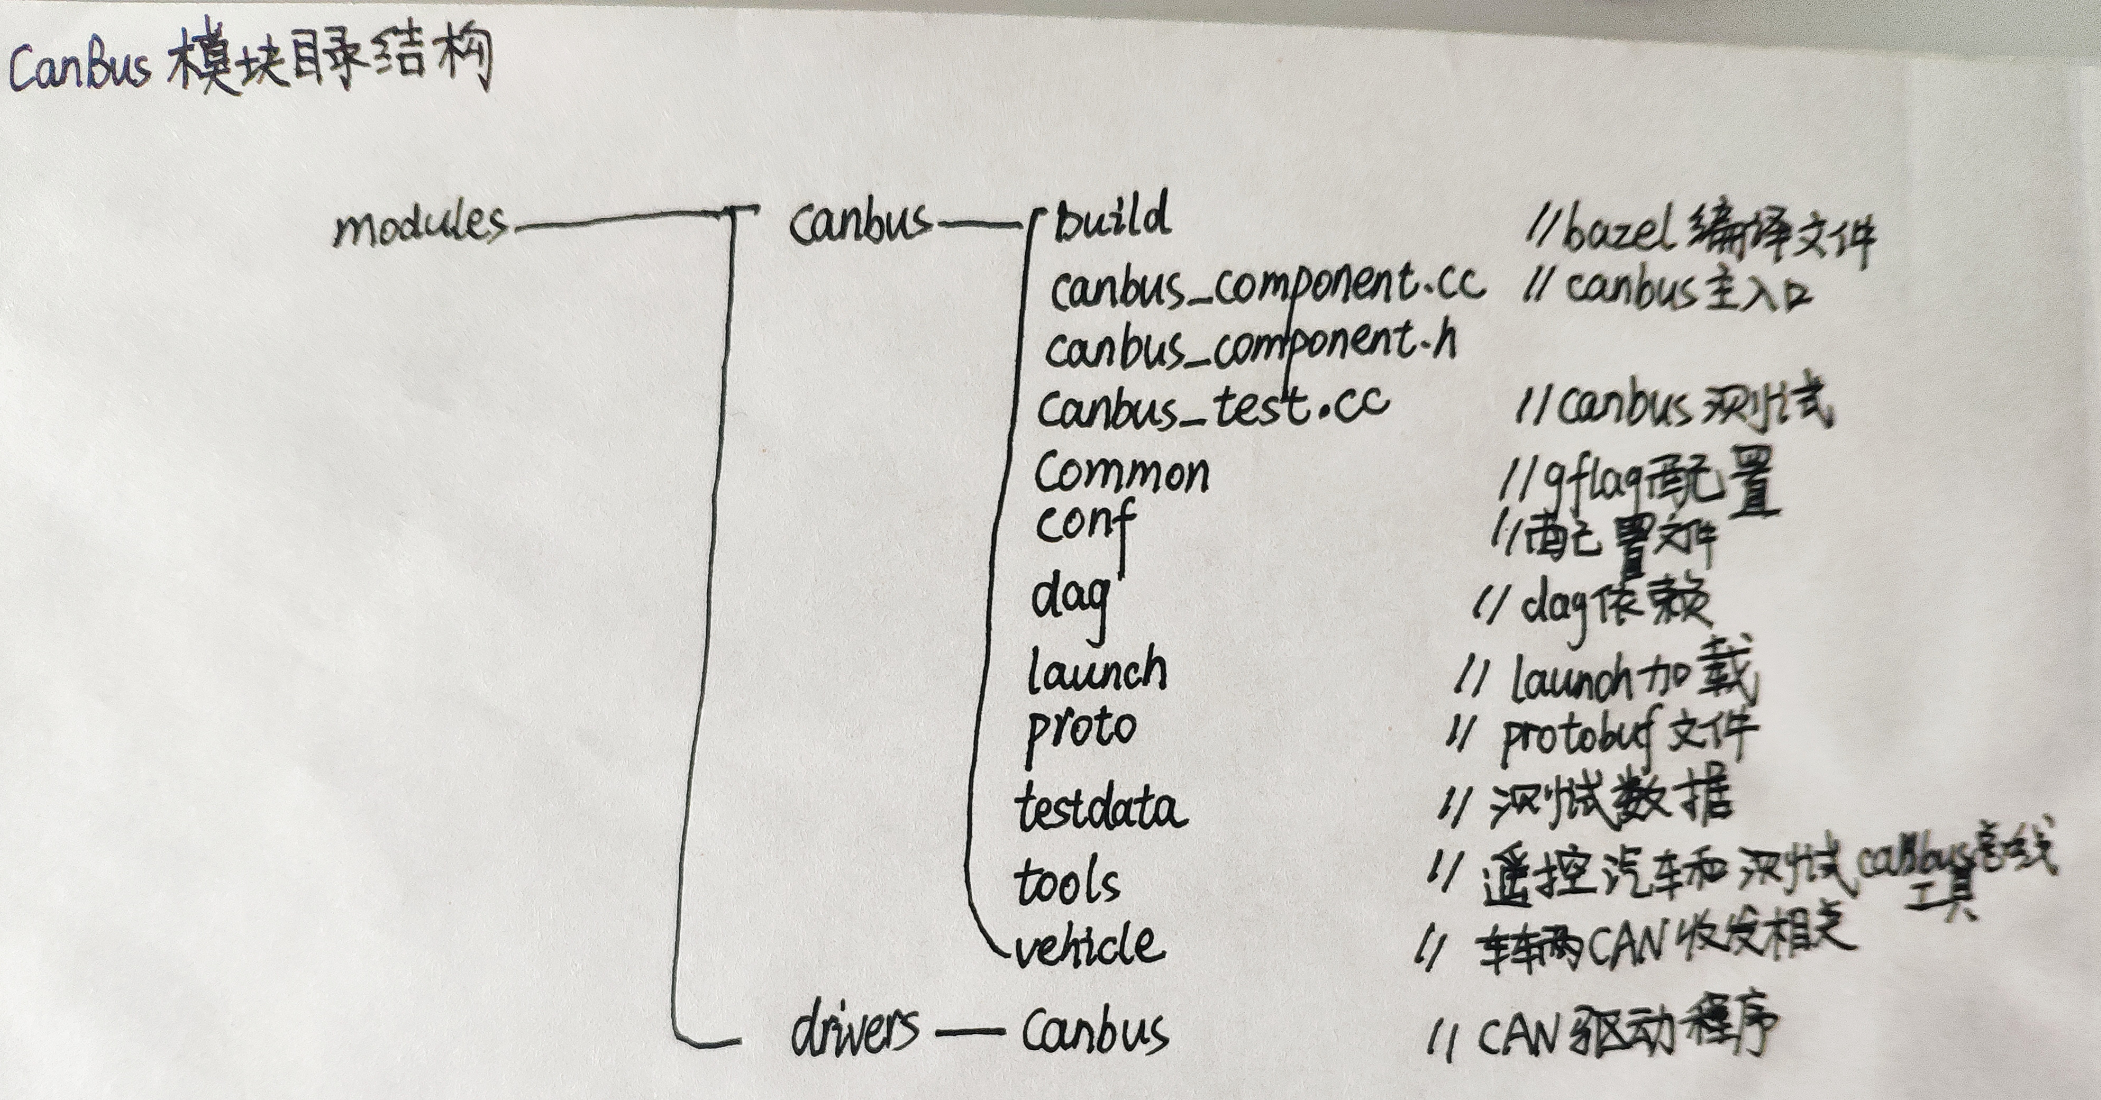 CanBus 模块目录结构
modules canbus build //bazel 编译文件
canbus_component.cc // canbus主入口
canbus_component.h
canbus_test.cc //canbus 测试
common //gflag配置
conf //配置文件
dag // dag依赖
launch // launch加载
proto // protobuf 文件
testdata // 测试数据
tools // 遥控汽车和测试canbus总线
工具
vehicle // 车辆CAN收发相关
drivers Canbus // CAN 驱动程序